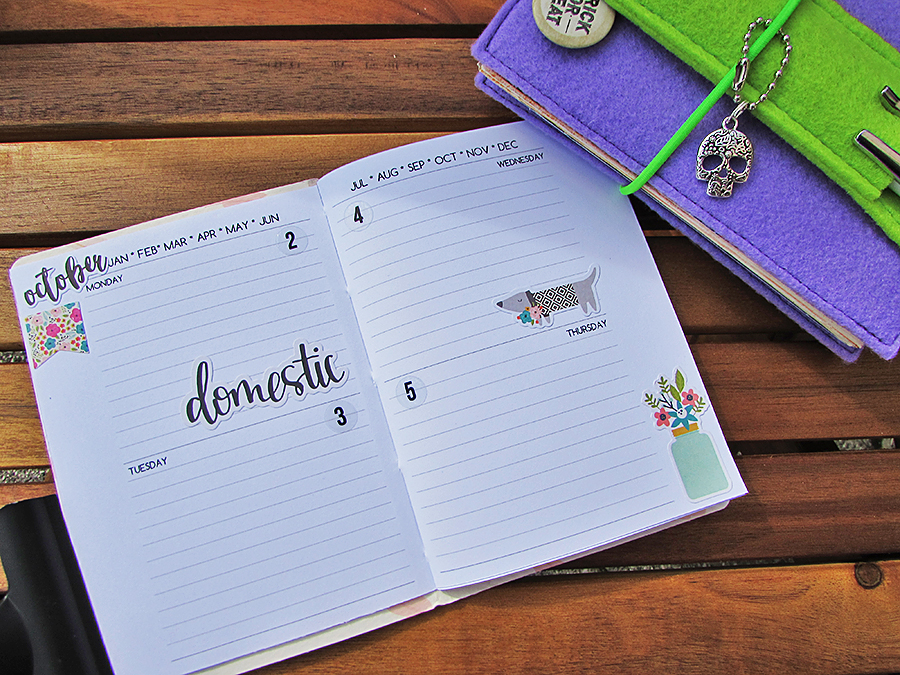 october
JAN * FEB * MAR * APR * MAY * JUN
MONDAY
2
domestic
3
TUESDAY
JUL * AUG * SEP * OCT * NOV * DEC
WEDNESDAY
4
THURSDAY
5
OR